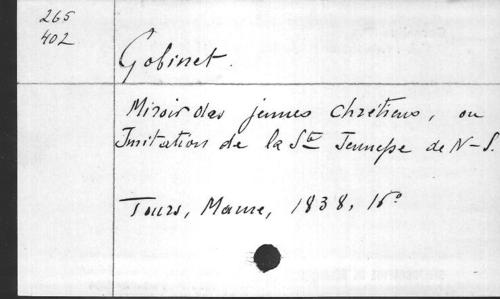 265
402
Gobinet.
Miroir des jeunes chrétiens, ou
Imitation de la Ste Jeunesse de N-S.
Tours, Mame, 1838, 16°